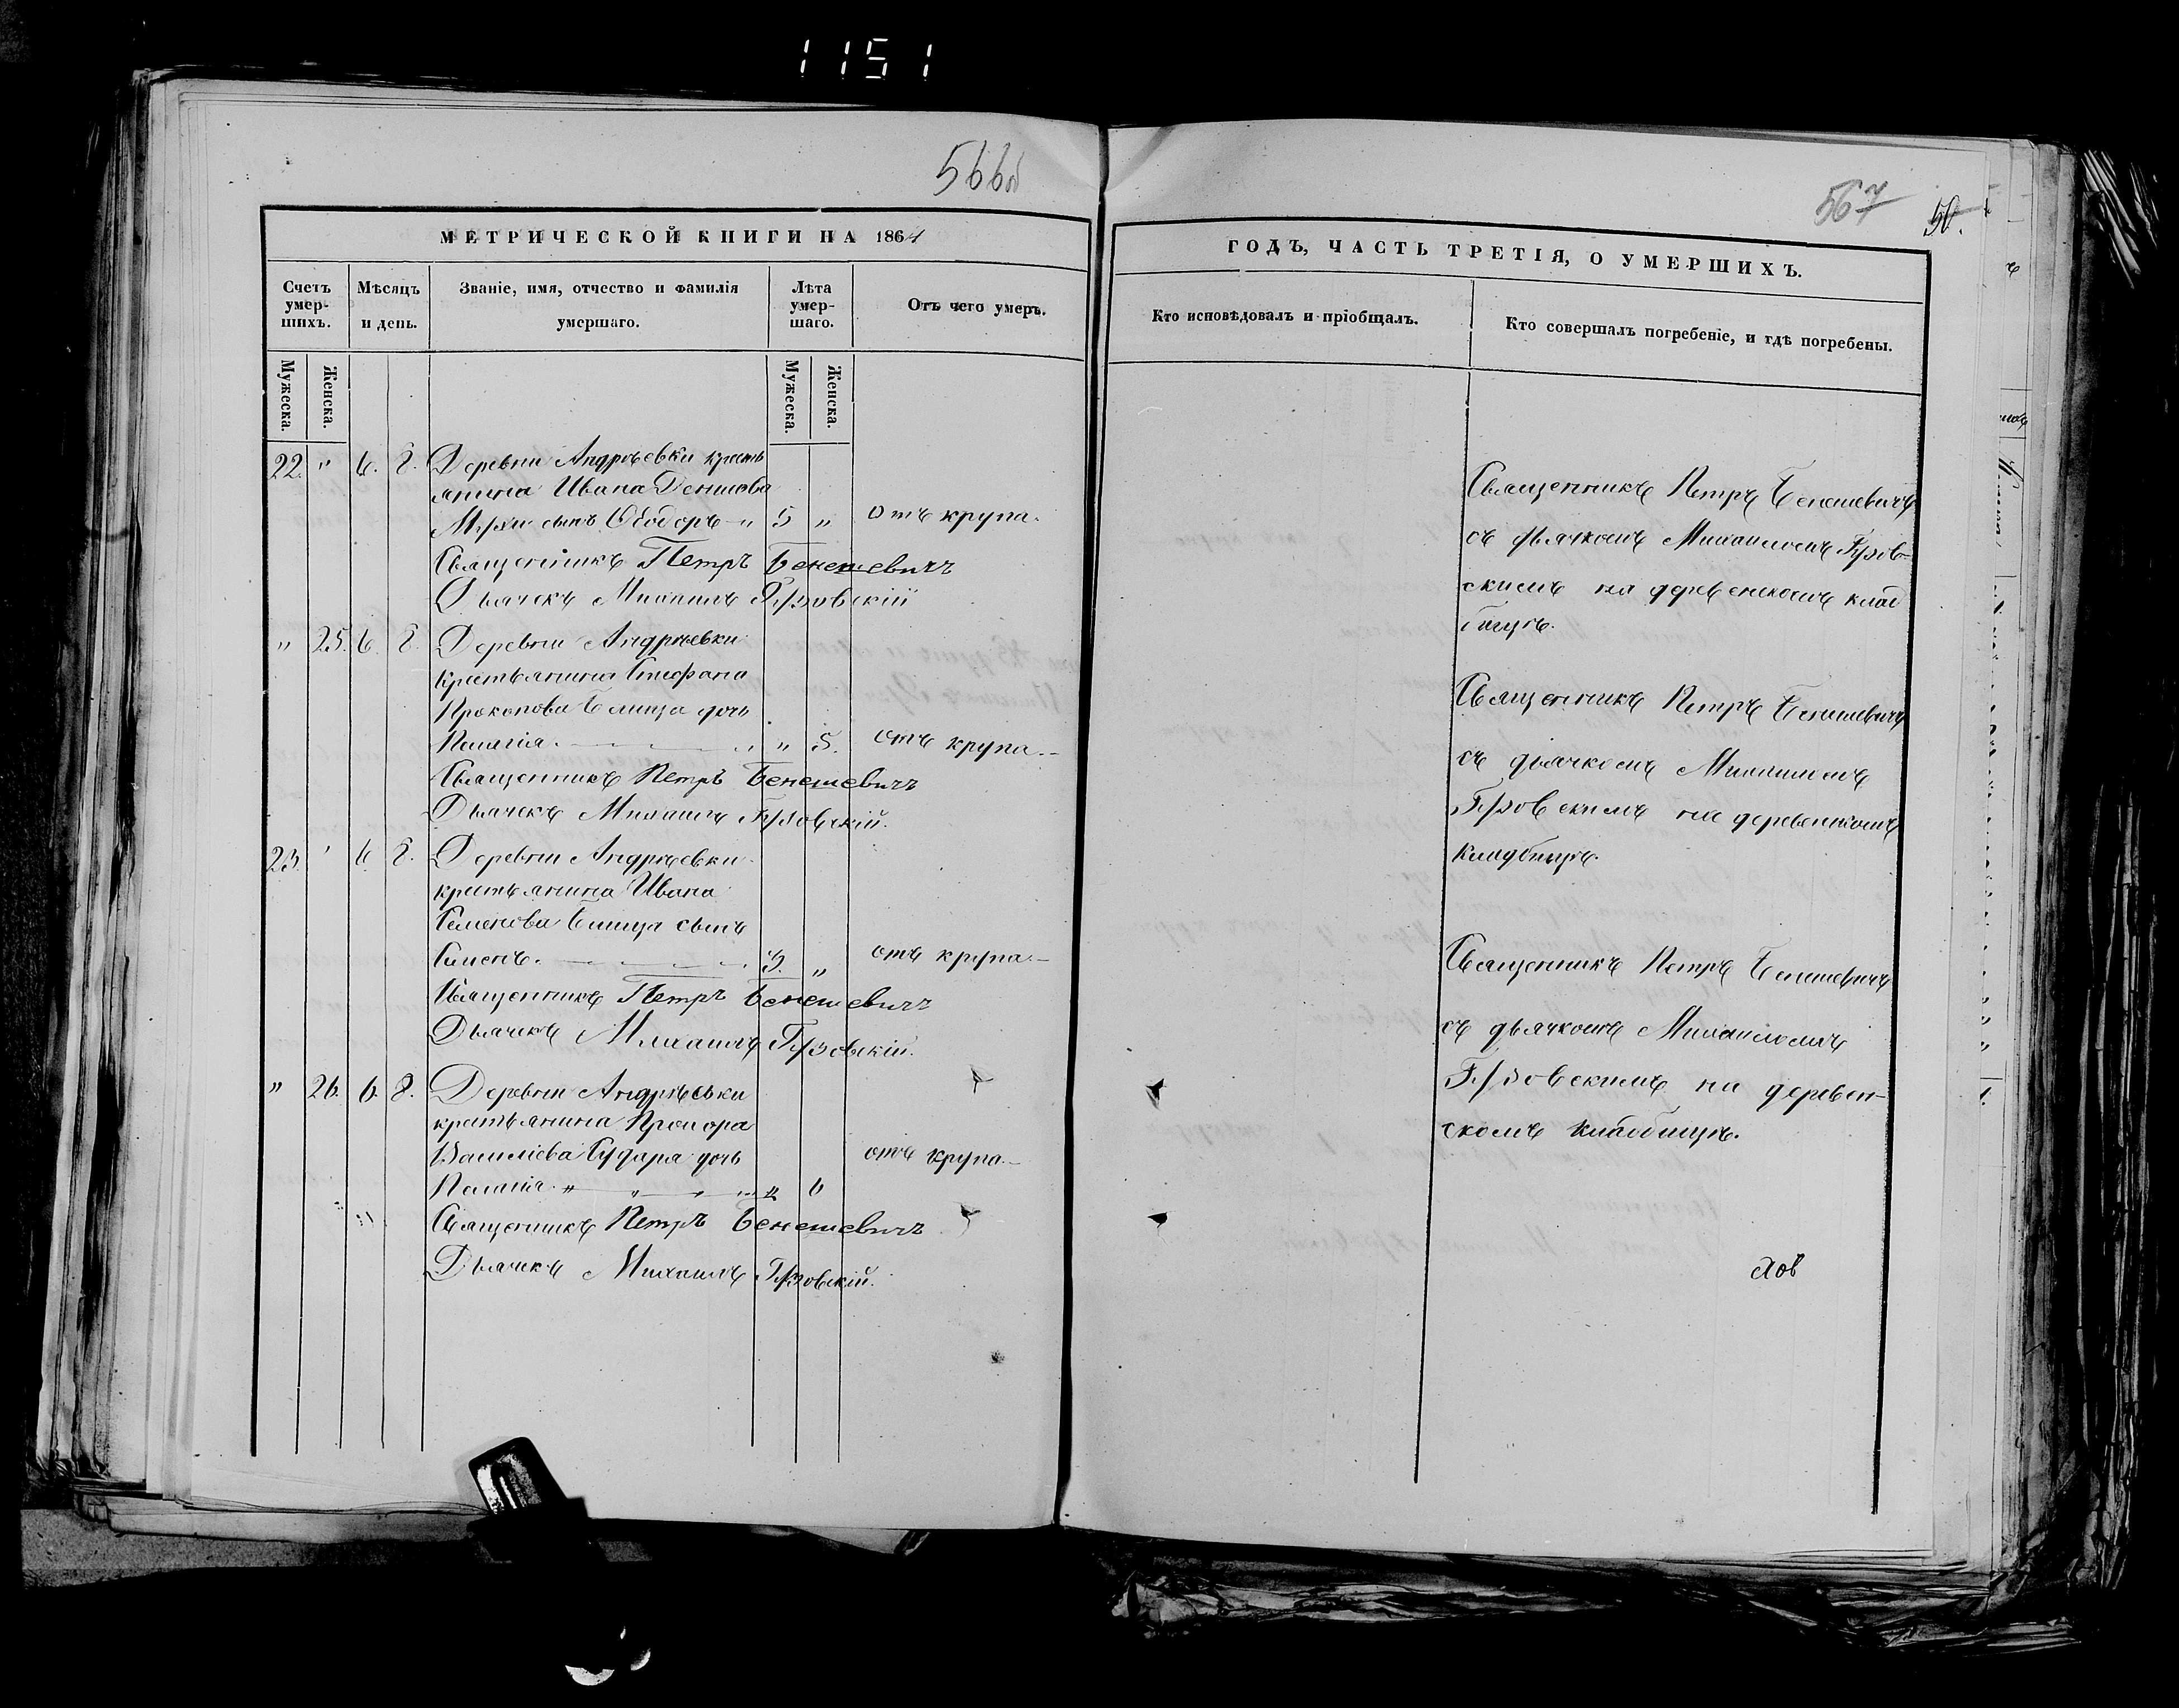 1151
566об
567
50.
МЕТРИЧЕСКОЙ КНИГИ НА 1864
ГОДЪ, ЧАСТЬ ТРЕТІЯ, О УМЕРШИХЪ.
Счетъ умер-шихъ.
Мѣсяцъ и день.
Званіе, имя, отчество и фамилія умершаго.
Лѣта умер-шаго.
Отъ чего умеръ.
Кто исповѣдовалъ и пріобщалъ.
Кто совершалъ погребеніе, и гдѣ погребены.
Мужеска.
Женска.
Мужеска.
Женска.
22. " 6. 8. Деревни Андрѣевки кресть
янина Ивана Денисова
сынъ Ѳеодоръ " 5 " отъ крупа.
Священникъ Петръ Бенешевичъ
Дьячекъ Михаилъ Грзовскій
Священникъ Петръ Бенешевичъ
съ дьячкомъ Михаиломъ Грзов-
скимъ на деревенскомъ клад
бищѣ.
" 25. 6. 8. Деревни Андрѣевки
крестьянина Стефана
Прокопова дочь
Пелагія. " 5. отъ крупа.
Священникъ Петръ Бенешевичъ
Дьячекъ Михаилъ Грзовскій.
Священникъ Петръ Бенешевичъ
съ дьячкомъ Михаиломъ
Грзовскимъ на деревенскомъ
кладбищѣ.
23. " 6. 8. Деревни Андрѣевки
крестьянина Ивана
Семенова сынъ
Симеонъ. 3. " отъ крупа.
Священникъ Петръ Бенешевичъ
Дьячекъ Михаилъ Грзовскій.
Священникъ Петръ Бенешевичъ
съ дьячкомъ Михаиломъ
Грзовскимъ на деревен-
скомъ кладбищѣ.
" 26. 6. 8. Деревни Андрѣевки
крестьянина Прохора
Василіева дочь отъ крупа.
" 6
Священникъ Петръ Бенешевичъ
Дьячекъ Михаилъ Грзовскій.